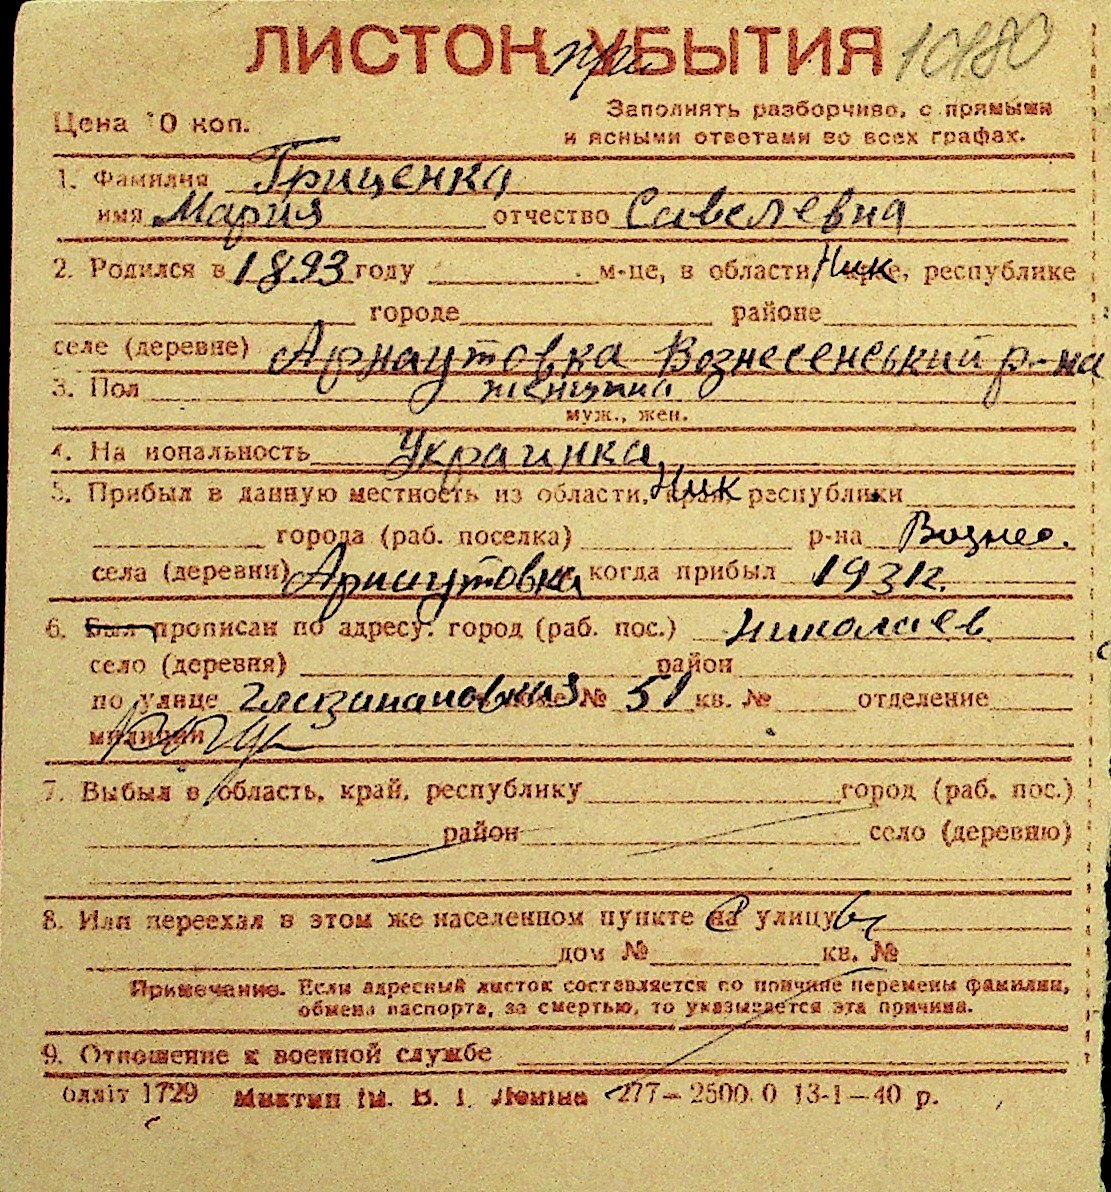 ЛИСТОК при УБЫТИЯ 10180
Цена 10 коп.
Заполнять разборчиво, с прямыми
и ясными ответами во всех графах.
1. Фамилия Гриценка
имя Мария отчество Савелевна
2. Родился в 1893 году м-це, в области, Ник крае, республике
городе районе
селе (деревне) Арнаутовка Вознесенський р-на
3. Пол женщина
муж., жен.
4. Национальность Украинка
5. Прибыл в данную местность из области, Ник края, республики
города (раб. поселка) р-на Вознес.
села (деревни) Арнаутовка когда прибыл 1931г.
6. Был прописан по адресу: город (раб. пос.) Николаев
село (деревня) район
по улице № 51 кв. № отделение
милиции
7. Выбыл в область, край, республику город (раб. пос.)
район село (деревню)
8. Или переехал в этом же населенном пункте на улицу
дом № кв. №
Примечание. Если адресный листок составляется по причине перемены фамилии,
обмена паспорта, за смертью, то указывается эта причина.
9. Отношение к военной службе
облліт 1729 Миктип ім. В. І. Леніна 277—2500.0 13-1—40 р.